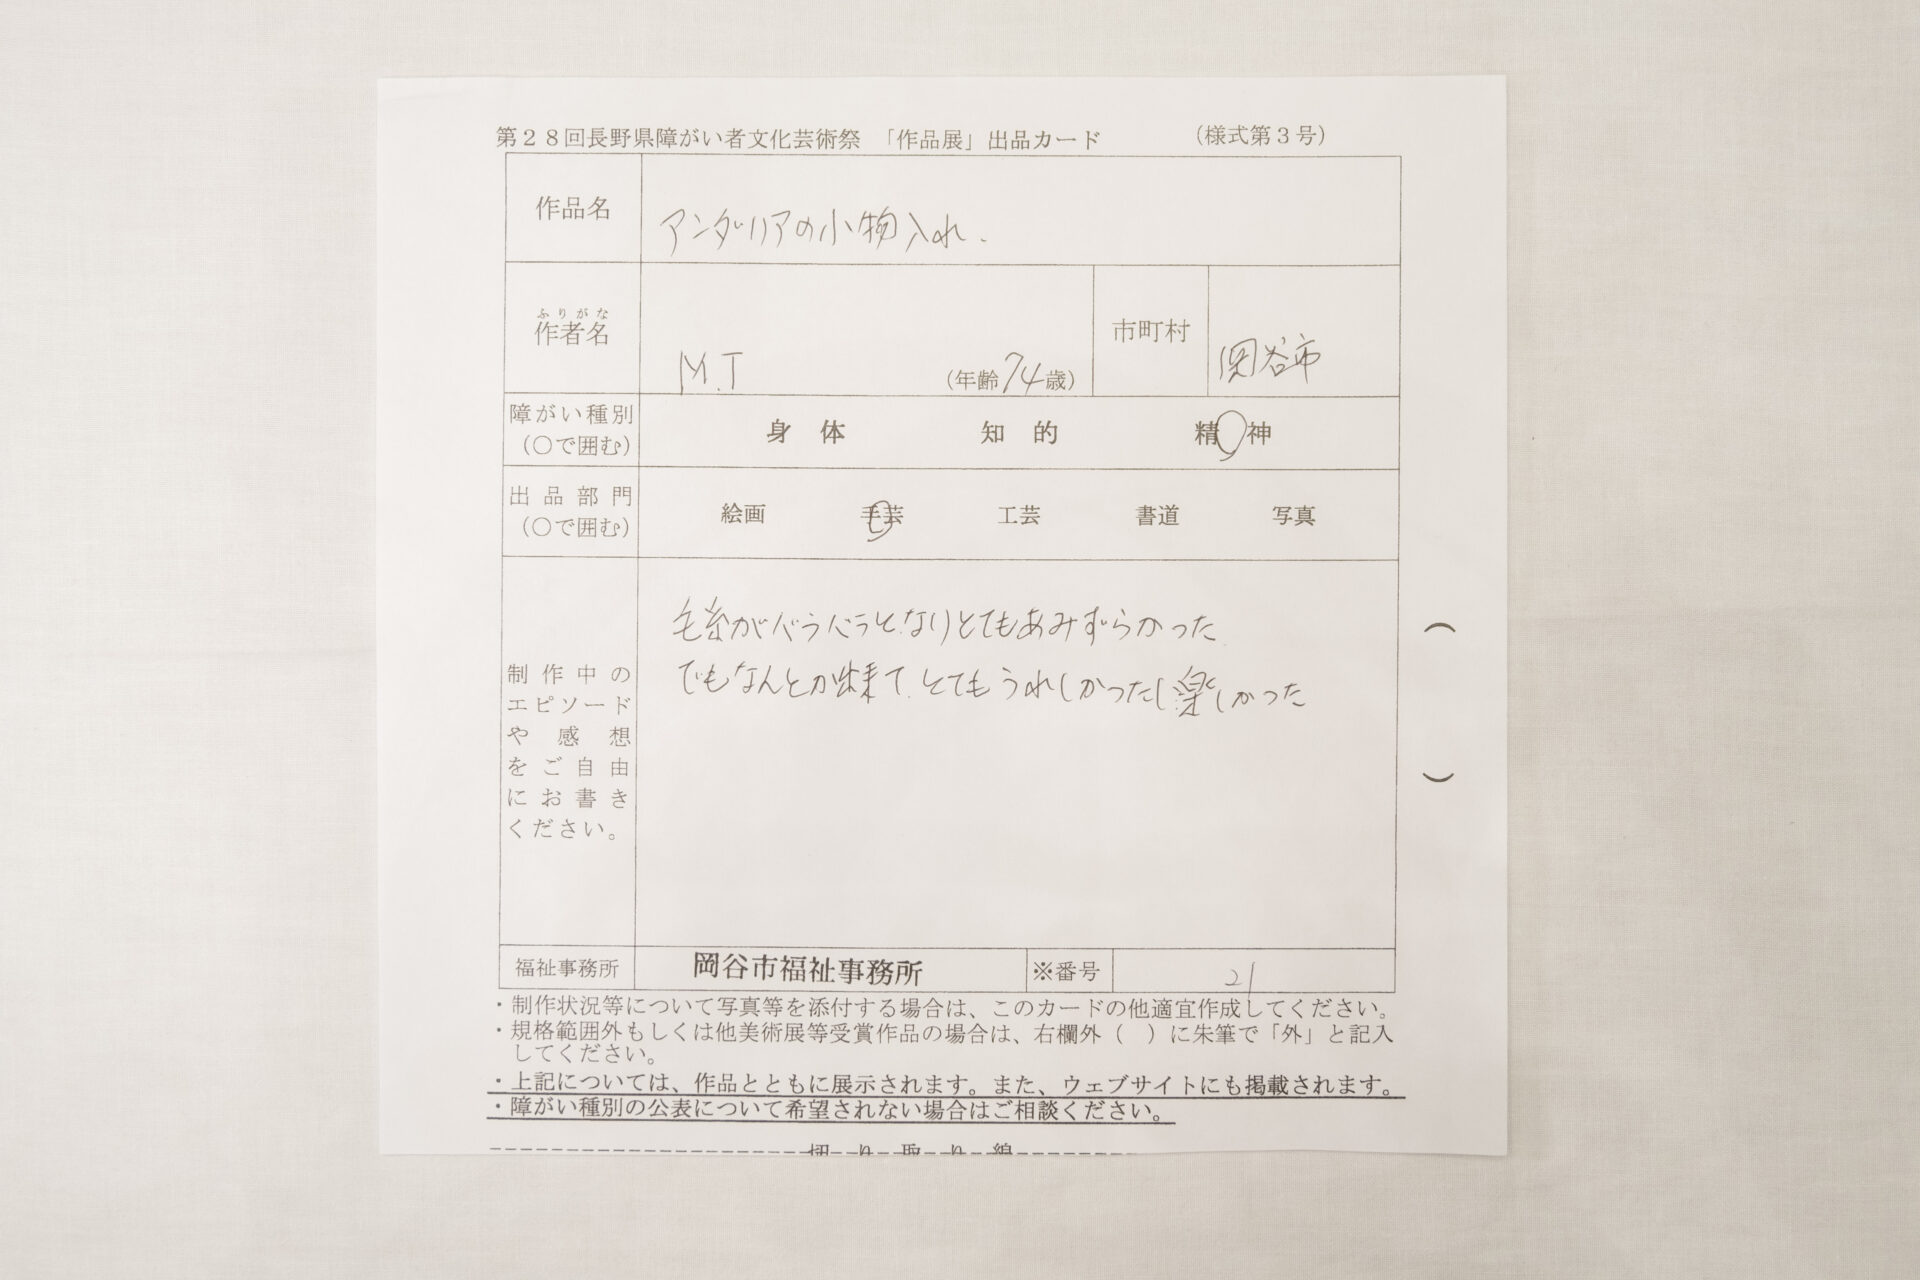 第28回長野県障がい者文化芸術祭 「作品展」出品カード (様式第3号)
作品名 アンダリアの小物入れ.
ふりがな
作者名 M.T (年齢74歳) 市町村 岡谷市
障がい種別 (○で囲む) 身体 知的 精神
出品部門 (○で囲む) 絵画 手芸 工芸 書道 写真
制作中の
エピソード
や感想
をご自由
にお書き
ください。
毛糸がバラバラとなりとてもあみずらかった
でもなんとか出来て、とてもうれしかったし楽しかった
( )
福祉事務所 岡谷市福祉事務所 ※番号 21
・制作状況等について写真等を添付する場合は、このカードの他適宜作成してください。
・規格範囲外もしくは他美術展等受賞作品の場合は、右欄外( )に朱筆で「外」と記入
してください。
・上記については、作品とともに展示されます。また、ウェブサイトにも掲載されます。
・障がい種別の公表について希望されない場合はご相談ください。
切り取り線